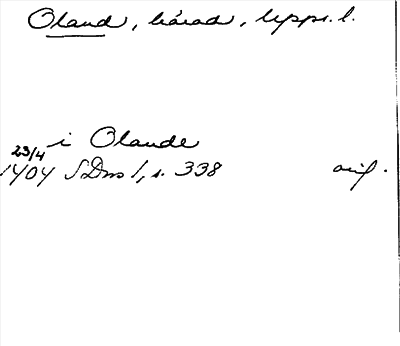 Oland, härad, Upps. l.
i Olande
23/4
1404 SDns 1, s. 338 orig.